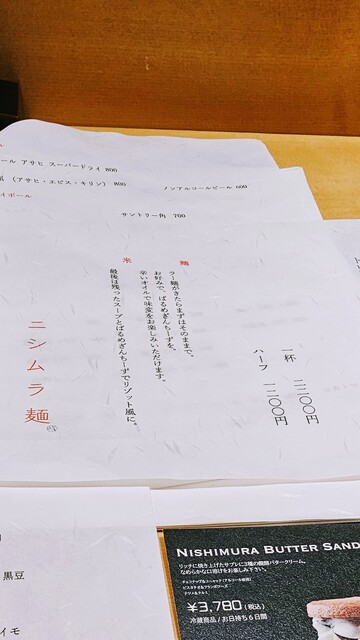 ール アサヒ スーパードライ 800
(アサヒ・エビス・キリン) 800
ノンアルコールビール 600
イボール
サントリー角 700
一杯 二二〇〇円
ハーフ 一二〇〇円
麺
ラー麺がきたらまずはそのままで。
お好みで、ぱるめざんちーずを。
辛いオイルで味変をお楽しみいただけます。
米
最後は残ったスープとぱるめざんちーずでリゾット風に。
ニシムラ麺
黒豆
イモ
NISHIMURA BUTTER SAND
リッチに焼き上げたサブレに3種の醗酵バタークリーム。
なめらかな口溶けをお楽しみ下さい。
¥3,780(税込)
冷蔵商品/お日持ち6日間